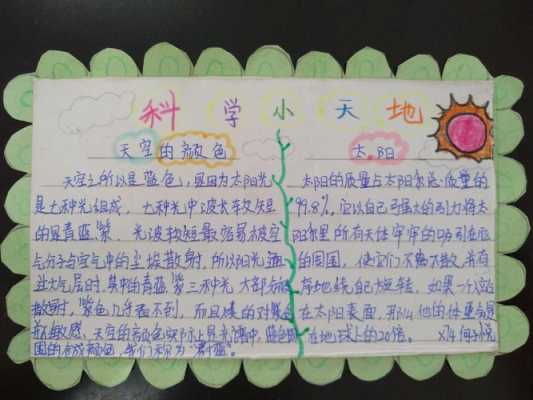 科学小天地
天空的颜色
天空之所以是蓝色,是因为太阳光
是七种光组成,七种光中波长较短
的是青蓝紫,光波较短最容易被空
气分子与空气中的尘埃散射,所以阳光
过大气层时,其中的青蓝紫三种光大部分
散射,紫色几乎看不到,而且
敏感,天空的颜色实际上是光谱中蓝色
围的合成颜色,我们称为"蔚蓝"。
太阳
太阳的质量占太阳系总质量的
99.8%,它以自己强大的引力将太
阳系里所有天体牢牢的吸引在它
的周围,使它们不离不散,井然有
在太阳表面,那么他的体重会是
在地球上的20倍。